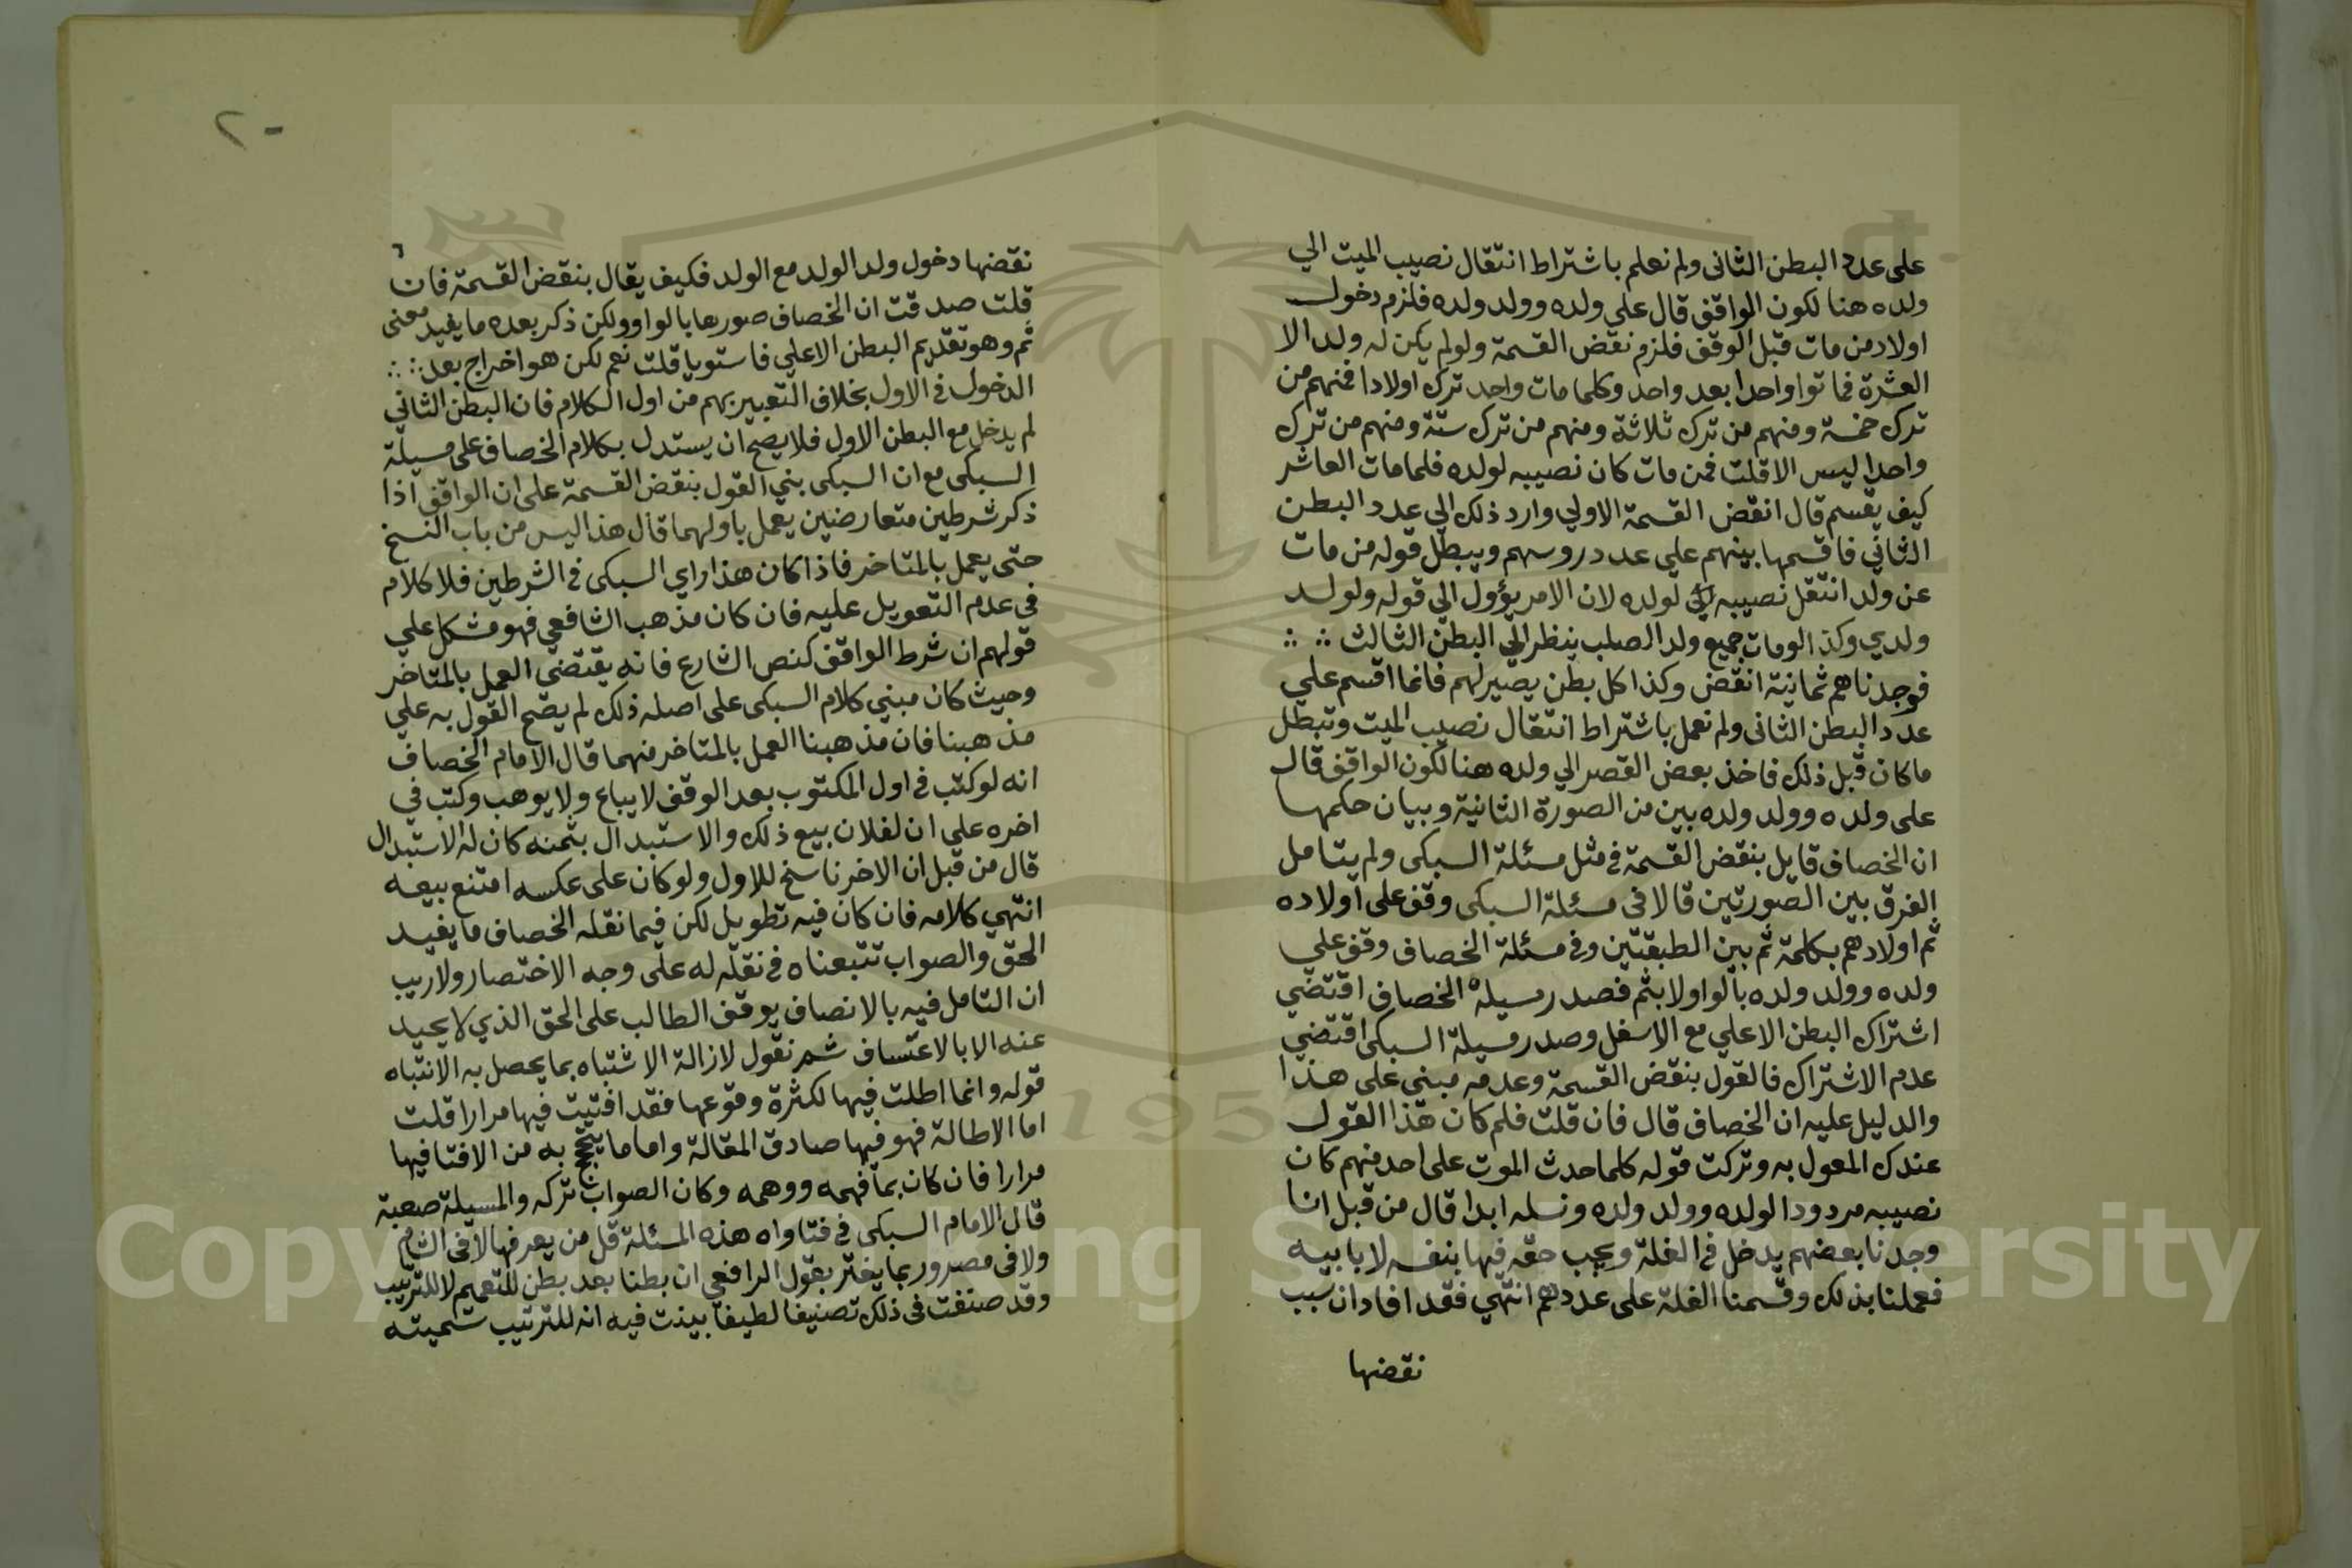 على عدد البطن الثانى ولم نعلم باشتراط انتقال نصيب الميت الي
ولده هنا لكون الواقف قال على ولده وولد ولده فلزم دخول
اولاد من مات قبل الوقف فلزم نقض القسمة ولو لم يكن له ولد الا
العشرة فماتوا واحدا بعد واحد وكلما مات واحد ترك اولادا فمنهم من
ترك خمسة ومنهم من ترك ثلاثة ومنهم من ترك ستة ومنهم من ترك
واحدا ليس الا قلت فمن مات كان نصيبه لولده فلما مات العاشر
كيف يقسم قال انقض القسمة الاولي وارد ذلك الي عدد البطن
الثاني فاقسمها بينهم علي عدد روسهم ويبطل قوله من مات
عن ولد انتقل نصيبه لولده لان الامر يؤول الي قوله ولولد
ولدي وكذا لو مات جميع ولد الصلب ينظر الي البطن الثالث
فوجدناهم ثمانية انقض وكذا كل بطن يصير لهم فانما اقسم علي
عدد البطن الثانى ولم نعمل باشتراط انتقال نصيب الميت وتبطل
ما كان قبل ذلك فاخذ بعض القصر الي ولده هنا لكون الواقف قال
على ولده وولد ولده بين من الصورة الثانية وبيان حكمها
ان الخصاف قايل بنقض القسمة في مثل مسئلة السبكى ولم يتامل
الفرق بين الصورتين قالا فى مسئلة السبكى وقف على اولاده
ثم اولادهم بكلمة ثم بين الطبقتين وفي مسئلة الخصاف وقف علي
ولده وولد ولده بالواو لا بثم فصدر مسيلة الخصاف اقتضي
اشتراك البطن الاعلي مع الاسفل وصدر مسيلة السبكى اقتضي
عدم الاشتراك فالقول بنقض القسمة وعدمه مبنى على هذا
والدليل عليه ان الخصاف قال فان قلت فلم كان هذا القول
عندك المعول به وتركت قوله كلما حدث الموت على احد منهم كان
نصيبه مردودا لولده وولد ولده ونسله ابدا قال من قبل انا
وجدنا بعضهم يدخل في الغلة ويجب حقه فيها بنفسه لا بابيه
فعملنا بذلك وقسمنا الغلة على عددهم انتهي فقد افاد ان سبب
نقضها
٢٠
٦
نقضها دخول ولد الولد مع الولد فكيف يقال بنقض القسمة فان
قلت صدقت ان الخصاف صورها بالواو ولكن ذكر بعده ما يفيد معنى
ثم وهو تقديم البطن الاعلي فاستويا قلت نعم لكن هو اخراج بعد
الدخول في الاول بخلاف التعبير بهم من اول الكلام فان البطن الثاني
لم يدخل مع البطن الاول فلا يصح ان يستدل بكلام الخصاف على مسيلة
السبكى مع ان السبكى بني القول بنقض القسمة على ان الواقف اذا
ذكر شرطين متعارضين يعمل باولهما قال هذا ليس من باب النسخ
حتى يعمل بالمتاخر فاذا كان هذا راي السبكى في الشرطين فلا كلام
في عدم التعويل عليه فان كان مذهب الشافعي فهو مشكل علي
قولهم ان شرط الواقف كنص الشارع فانه يقتضي العمل بالمتاخر
وحيث كان مبني كلام السبكى على اصله ذلك لم يصح القول به علي
مذهبنا فان مذهبنا العمل بالمتاخر منهما قال الامام الخصاف
انه لو كتب في اول المكتوب بعد الوقف لا يباع ولا يوهب وكتب في
اخره على ان لفلان بيع ذلك والاستبدال بثمنه كان له الاستبدال
قال من قبل ان الاخر ناسخ للاول ولو كان على عكسه امتنع بيعه
انتهي كلامه فان كان فيه تطويل لكن فيما نقله الخصاف ما يفيد
الحق والصواب تتبعناه في نقله له على وجه الاختصار ولا ريب
ان التامل فيه بالانصاف يوقف الطالب على الحق الذي لا يحيد
عنه الا بالاعتساف ثم نقول لازالة الاشتباه بما يحصل به الانتباه
قوله وانما اطلت فيها لكثرة وقوعها فقد افتيت فيها مرارا قلت
اما الاطالة فهو فيها صادق المقالة واما ما يتبجح به من الافتا فيها
مرارا فان كان بما فهمه ووهمه وكان الصواب تركه والمسيلة صعبة
قال الامام السبكى في فتاواه هذه المسئلة قل من يعرفها لا فى الشام
ولا فى مصر وربما يغتر بقول الرافعي ان بطنا بعد بطن للتعميم لا للترتيب
وقد صنفت فى ذلك تصنيفا لطيفا بينت فيه انه للترتيب سميته
Copyright © King Saud University
195